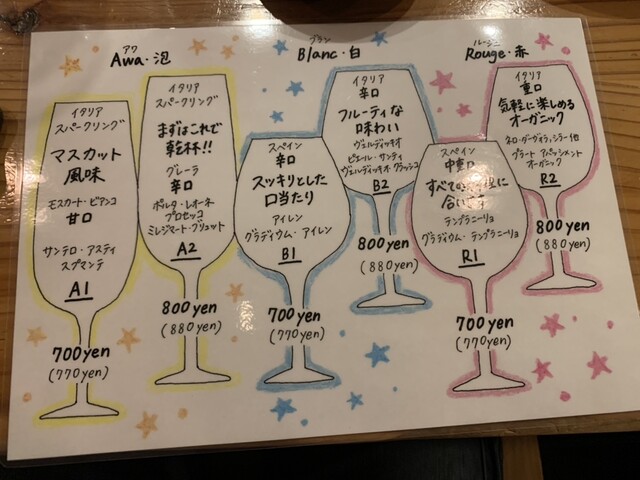 アワ
Awa・泡
イタリア
スパークリング
マスカット
風味
モスカート・ビアンコ
甘口
サンテロ・アスティ
スプマンテ
A1
700yen
(770yen)
イタリア
スパークリング
まずはこれで
乾杯!!
グレーラ
辛口
ポルタ・レオーネ
プロセッコ
ミレジマート・ブリュット
A2
800yen
(880yen)
ブラン
Blanc・白
スペイン
辛口
スッキリとした
口当たり
アイレン
グラディウム・アイレン
B1
700yen
(770yen)
イタリア
辛口
フルーティな
味わい
ヴェルディッキオ
ピエール・サンティ
ヴェルディッキオ クラッシコ
B2
800yen
(880yen)
Rouge・赤
スペイン
中重口
すべての
に
合います
テンプラニーリョ
グラディウム・テンプラニーリョ
R1
700yen
(770yen)
イタリア
重口
気軽に楽しめる
オーガニック
ネロ・ダーヴィラ、シラー他
オーガニック
R2
800yen
(880yen)